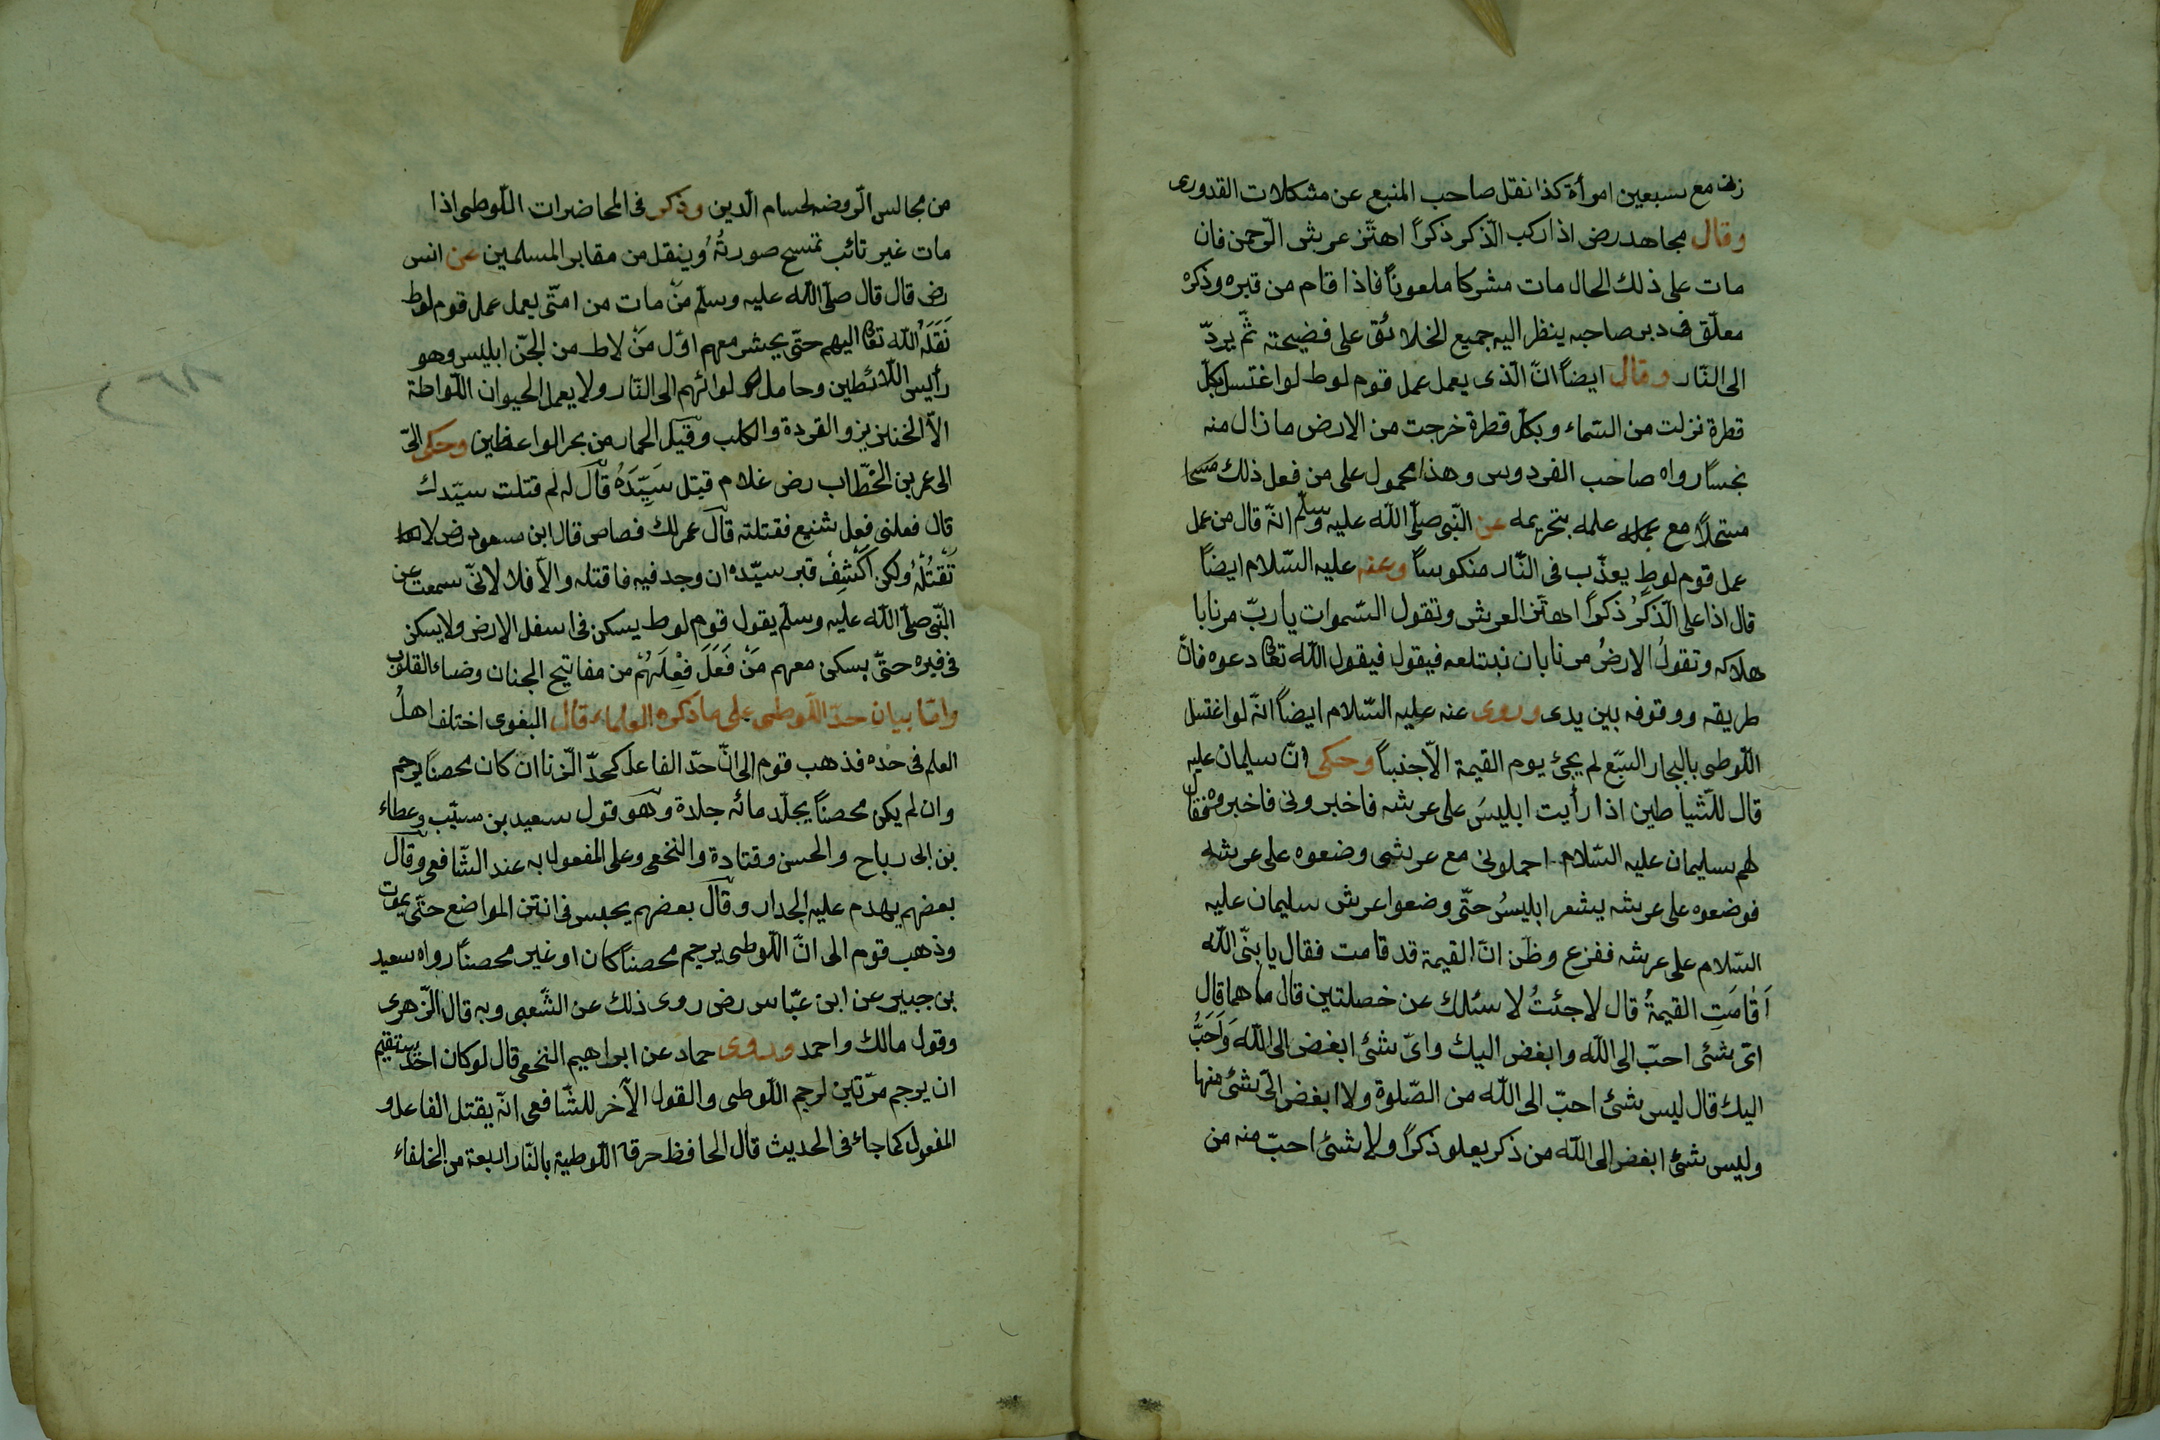 زنى مع سبعين امرأة كذا نقل صاحب المنبع عن مشكلات القدورى
وقال مجاهد رض اذا ركب الذّكر ذكرًا اهتّز عرش الرّحمن فان
مات على ذلك الحال مات مشركا ملعونًا فاذا قام من قبره وذكره
معلّق فى دبر صاحبه ينظر اليه جميع الخلائق على فضيحته ثمّ يردّ
الى النّار وقال ايضاً انّ الّذى يعمل عمل قوم لوط لو اغتسل بكلّ
قطرة نزلت من السّماء وبكلّ قطرة خرجت من الارض ما زال منه
نجسًا رواه صاحب الفردوس وهذا محمول على من فعل ذلك
مستحلًّا مع علمه بتحريمه عن النّبى صلّى اللّه عليه وسلّم انّه قال من عمل
عمل قوم لوطٍ يعذّب فى النّار منكوساً وعنه عليه السّلام ايضاً
قال اذا على الذّكرُ ذكرًا اهتزّ العرش وتقول السّموات يا ربّ مرنا با
هلاكه وتقولُ الارضُ مرنا بان نبتلعه فيقول فيقول اللّه تعا دعوه فانّ
طريقه ووقوفه بين يدى وروى عنه عليه السّلام ايضاً انّه لو اغتسل
اللّوطى بالبحار السّبع لم يجئ يوم القيمة الّا جنباً وحكى انّ سليمان عليه
قال للشّياطين اذا رأيت ابليسَ على عرشه فاخبرونى فاخبروه فقال
لهم سليمان عليه السّلام احملونى مع عرشى وضعوه على عرشه
فوضعوه على عرشه يشعر ابليسُ حتّى وضعوا عرش سليمان عليه
السّلام على عرشه ففزع وظنّ انّ القيمة قد قامت فقال يا نبىّ اللّه
اَقامَتِ القيمةُ قال لا جئتُ لاسئلك عن خصلتين قال ما هما قال
اىّ شئ احبّ الى اللّه وابغض اليك واىّ شئ ابغض الى اللّه وَاَحَبُّ
اليك قال ليس شئ احبّ الى اللّه من الصّلوة ولا ابغض الىّ شئ منها
وليس شئ ابغض الى اللّه من ذكر يعلو ذكرًا ولا شئ احبّ منه من
من مجالس الرّوضه لحسام الدّين وذكر فى المحاضرات اللّوطى اذا
مات غير تائب تمسح صورتُهُ وينقل من مقابر المسلمين عن انس
رض قال قال صلّى اللّه عليه وسلّم مَنْ مات من امّتى يعمل عمل قوم لوط
نَقَلَهُ اللّه تعا اليهم حتّى يحشر معهم اوّل مَنْ لاط من الجنّ ابليس وهو
رأيس اللّائطين وحامل لوائهم الى النّار ولا يعمل الحيوان اللّواطة
الّا الخنازير والقردة والكلب وقيل الحمار من بحر الواعظين وحكى
الى عمر بن الخطّاب رض غلام قتل سَيِّدَهُ قال له لم قتلت سيّدك
قال فعلنى فعل شنيع فقتلته قال عمر لك قصاص قال ابن مسعود رض لا
تَقْتُلْهُ ولكن اكْشِفْ قبر سيّده ان وجد فيه فاقتله والّا فلا لانّى سمعت عن
النّبى صلّى اللّه عليه وسلّم يقول قوم لوط يسكن فى اسفل الارض ولا يسكن
فى قبره حتّى يسكن معهم مَنْ فَعَلَ فِعْلَهُمْ من مفاتيح الجنان وضياء القلوب
وامّا بيان حدّ اللّوطى على ما ذكره العلماء قال البغوى اختلف اهلُ
العلم فى حدّه فذهب قوم الى انّ حدّ الفاعل كحدّ الزّنا ان كان محصنًا يرجم
وان لم يكن محصنًا يجلّد مائه جلدة وهو قول سعيد بن مسيّب وعطاء
بن ابى رباح والحسن وقتادة والنخعى وعلى المفعول به عند الشّافعى وقال
بعضهم يهدم عليه الجدار وقال بعضهم يحبس فى انتن المواضع حتّى يموت
وذهب قوم الى انّ اللّوطى يرجم محصناً كان او غير محصناً رواه سعيد
بن جبير عن ابن عبّاس رض روى ذلك عن الشّعبى وبه قال الزّهرى
وقول مالك واحمد وروى حماد عن ابراهيم النخعى قال لو كان احد يستقيم
ان يرجم مرّتين لرجم اللّوطى والقول الآخر للشّافعى انّه يقتل الفاعل و
المفعول كما جاء فى الحديث قال الحافظ حرقه اللّوطية بالنّار اربعة من الخلفاء